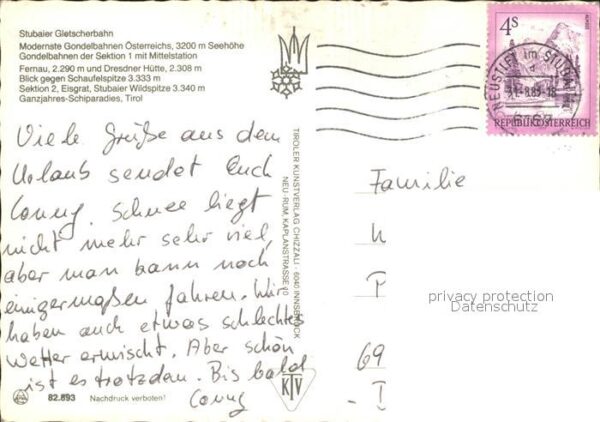 Stubaier Gletscherbahn
Modernste Gondelbahnen Österreichs, 3200 m Seehöhe
Gondelbahnen der Sektion 1 mit Mittelstation
Fernau, 2.290 m und Dresdner Hütte, 2.308 m
Blick gegen Schaufelspitze 3.333 m
Sektion 2, Eisgrat, Stubaier Wildspitze 3.340 m
Ganzjahres-Schiparadies, Tirol
Viele Grüße aus dem
Urlaub sendet Euch
Conny. Schnee liegt
nicht mehr sehr viel,
aber man kann noch
einigermaßen fahren. Wir
haben auch etwas schlechtes
Wetter erwischt. Aber schön
ist es trotzdem. Bis bald
Conny
82.893 Nachdruck verboten!
TIROLER KUNSTVERLAG CHIZZALI · 6040 INNSBRUCK
NEU-RUM, KAPLANSTRASSE 10
KTV
4S
REPUBLIK ÖSTERREICH
NEUSTIFT im STUBAITAL
6167
Familie
privacy protection
Datenschutz
69